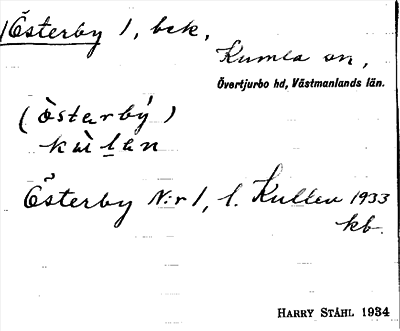 Österby 1, bsk,
Kumla sn,
Övertjurbo hd, Västmanlands län.
(òsterbý)
kùlan
Österby N:r 1, l. Kullen 1933
kb.
HARRY STÅHL 1934